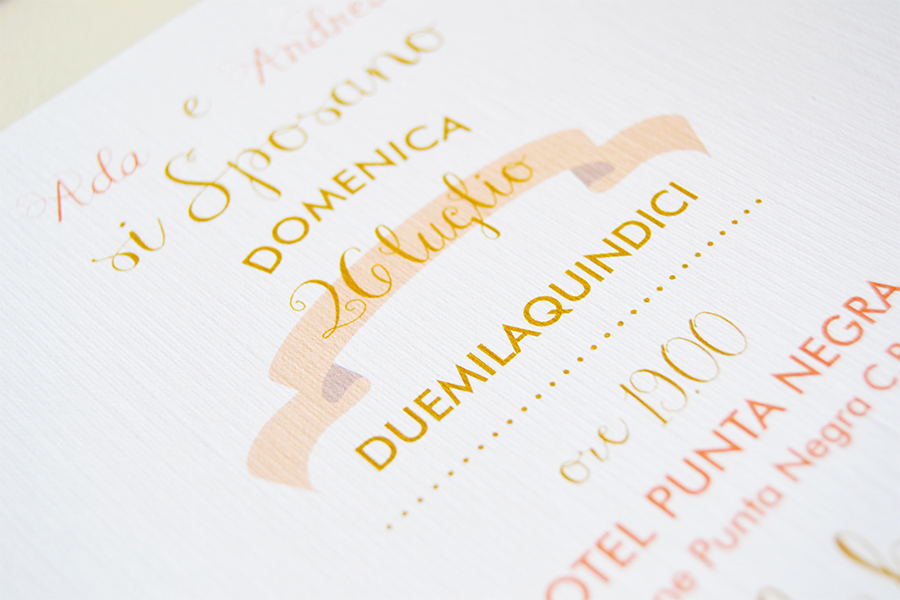 Ada e Andrea
si Sposano
DOMENICA
26 luglio
DUEMILAQUINDICI
ore 19.00
HOTEL PUNTA NEGRA
Punta Negra